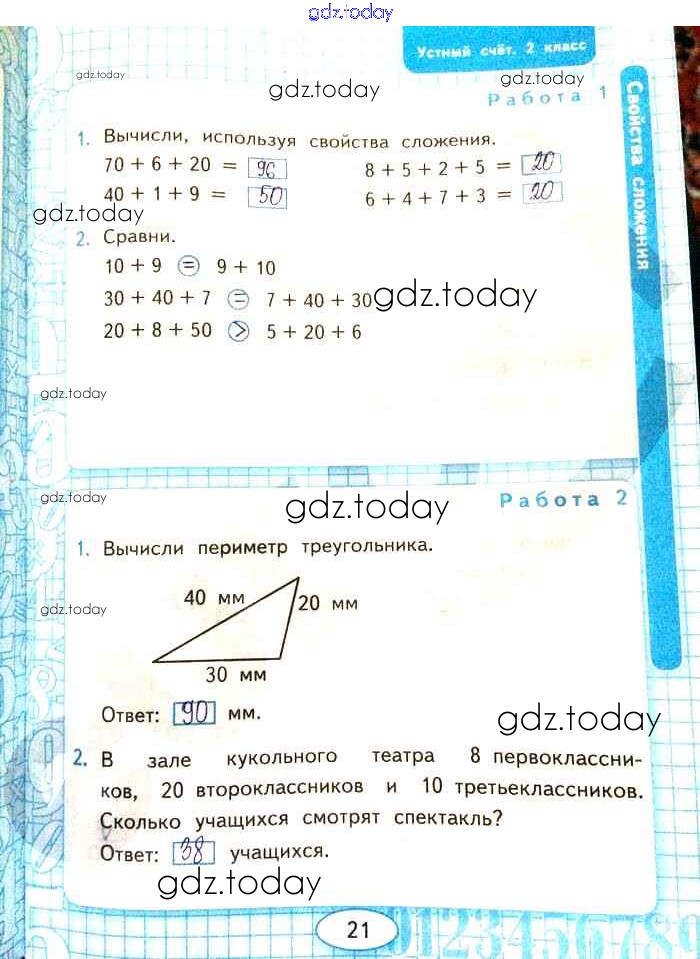 gdz.today
Устный счёт. 2 класс
gdz.today
gdz.today
gdz.today
Работа 1
Свойства сложения
1. Вычисли, используя свойства сложения.
70 + 6 + 20 = 96
8 + 5 + 2 + 5 = 20
40 + 1 + 9 = 50
6 + 4 + 7 + 3 = 20
gdz.today
2. Сравни.
10 + 9 = 9 + 10
30 + 40 + 7 = 7 + 40 + 30
gdz.today
20 + 8 + 50 > 5 + 20 + 6
gdz.today
gdz.today
gdz.today
Работа 2
1. Вычисли периметр треугольника.
40 мм
20 мм
gdz.today
30 мм
Ответ: 90 мм.
gdz.today
2. В зале кукольного театра 8 первоклассни-
ков, 20 второклассников и 10 третьеклассников.
Сколько учащихся смотрят спектакль?
Ответ: 38 учащихся.
gdz.today
21
0123456789